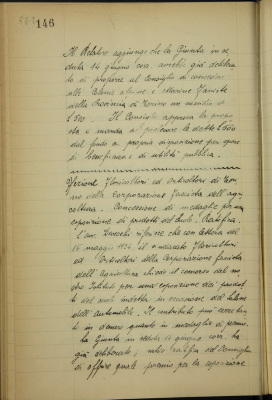 146
Il Relatore aggiunge che la Giunta in se
duta 14 giugno corr. avrebbe già delibera
to di proporre al Consiglio di concedere
alle Colonie alpine e marine Fasciste
della Provincia di Torino un sussidio di
L 500. Il Consiglio approva la propo
sta e manda a prelevare le dette L 500
dal fondo a propria disposizione per opere
di beneficenza e di utilità pubblica.
Sezione Floricultori ed Orticultori di Tori
no della Corporazione Fascista dell'agri
coltura. Concessione di medaglie per una
esposizione di prodotti del suolo. Ratifica.
L'avv. riferisce che con lettera del
18 maggio 1926 il Floricultori
ed Orticultori della Corporazione fascista
dell'Agricoltura chiese il concorso del no
stro Istituto per una esposizione dei prodot
ti del suolo indetta in occasione del Salone
dell'automobile. Il contributo può consistere
tanto in denaro quanto in medaglie di premio.
La Giunta in seduta 2 giugno corr. ha
già deliberato, salvo ratifica del Consiglio
di offrire quale premio per la esposizione